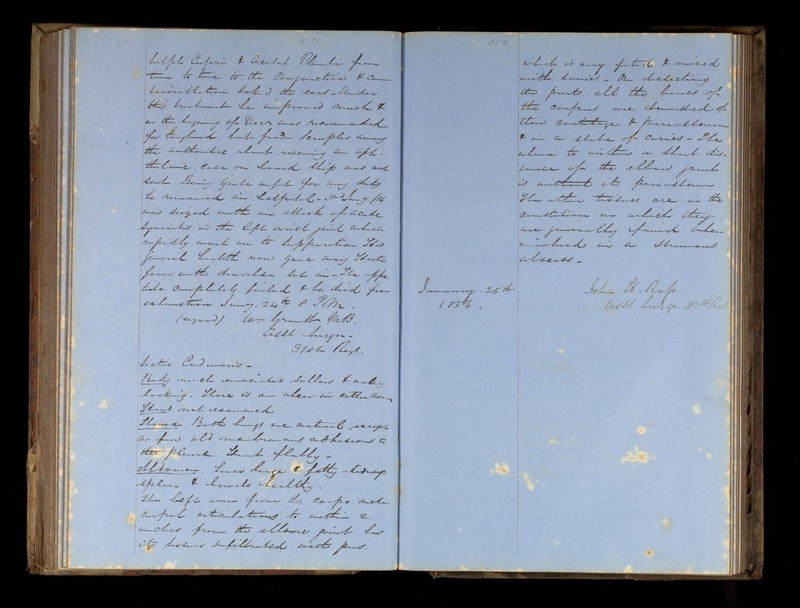 Sulph Cupri & Acetat Plumbi from
time to time to the Conjunctiva & Coun
terirritation behind the ears. Under
this treatment he improved much &
in the beging of Decr was recommended
for England but from scruples among
the authorities about receiving an oph-
thalmic case on board ship was not
sent. Being quite unfit for any duty
he remained in hospital -
was seized with an attack of acute
Synovitis in the left wrist joint which
rapidly went on to suppuration. His
general health now gave way Hectic
fever with diarrhoea set in - The appe-
tite completely failed & he died from
exhaustion Jany. 24th 8 P.M.
(signed) Wm M.B.
Asst Surgn.
Regt.
Sectio Cadaveris -
Body much emaciated sallow &
looking. There is an ulcer in either cornea
Head not examined
Thorax. Both lungs are natural except
a few old membranous adhesions to
the pleura Heart flabby -
Abdomen. Liver large & fatty - kidneys
spleen & bowels healthy.
The left arm from the carpo meta-
carpal articulations to within 2
inches from the elbow joint has
its tissues infiltrated with pus.
which is very fetid & mixed
with sanies - On dissecting
the parts all the bones of
the carpus are denuded of
their cartilage & periosteum
& in a state of caries - The
ulna to within a short dis-
tance of the elbow joint
is without its periosteum
The other tissues are in the
condition in which they
are generally found when
involved in a strumous
abscess -
January 25th
John H. Ross.
Asst Surgn. Regt